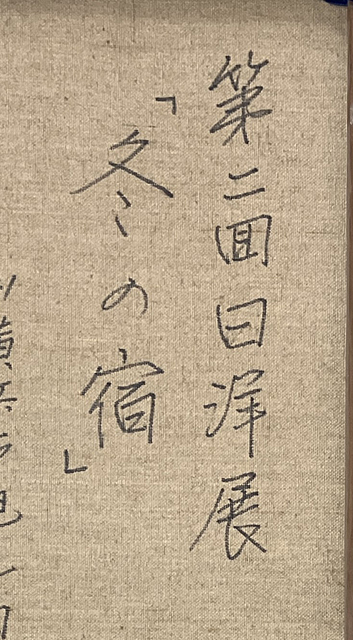 第二回日洋展
「冬の宿」